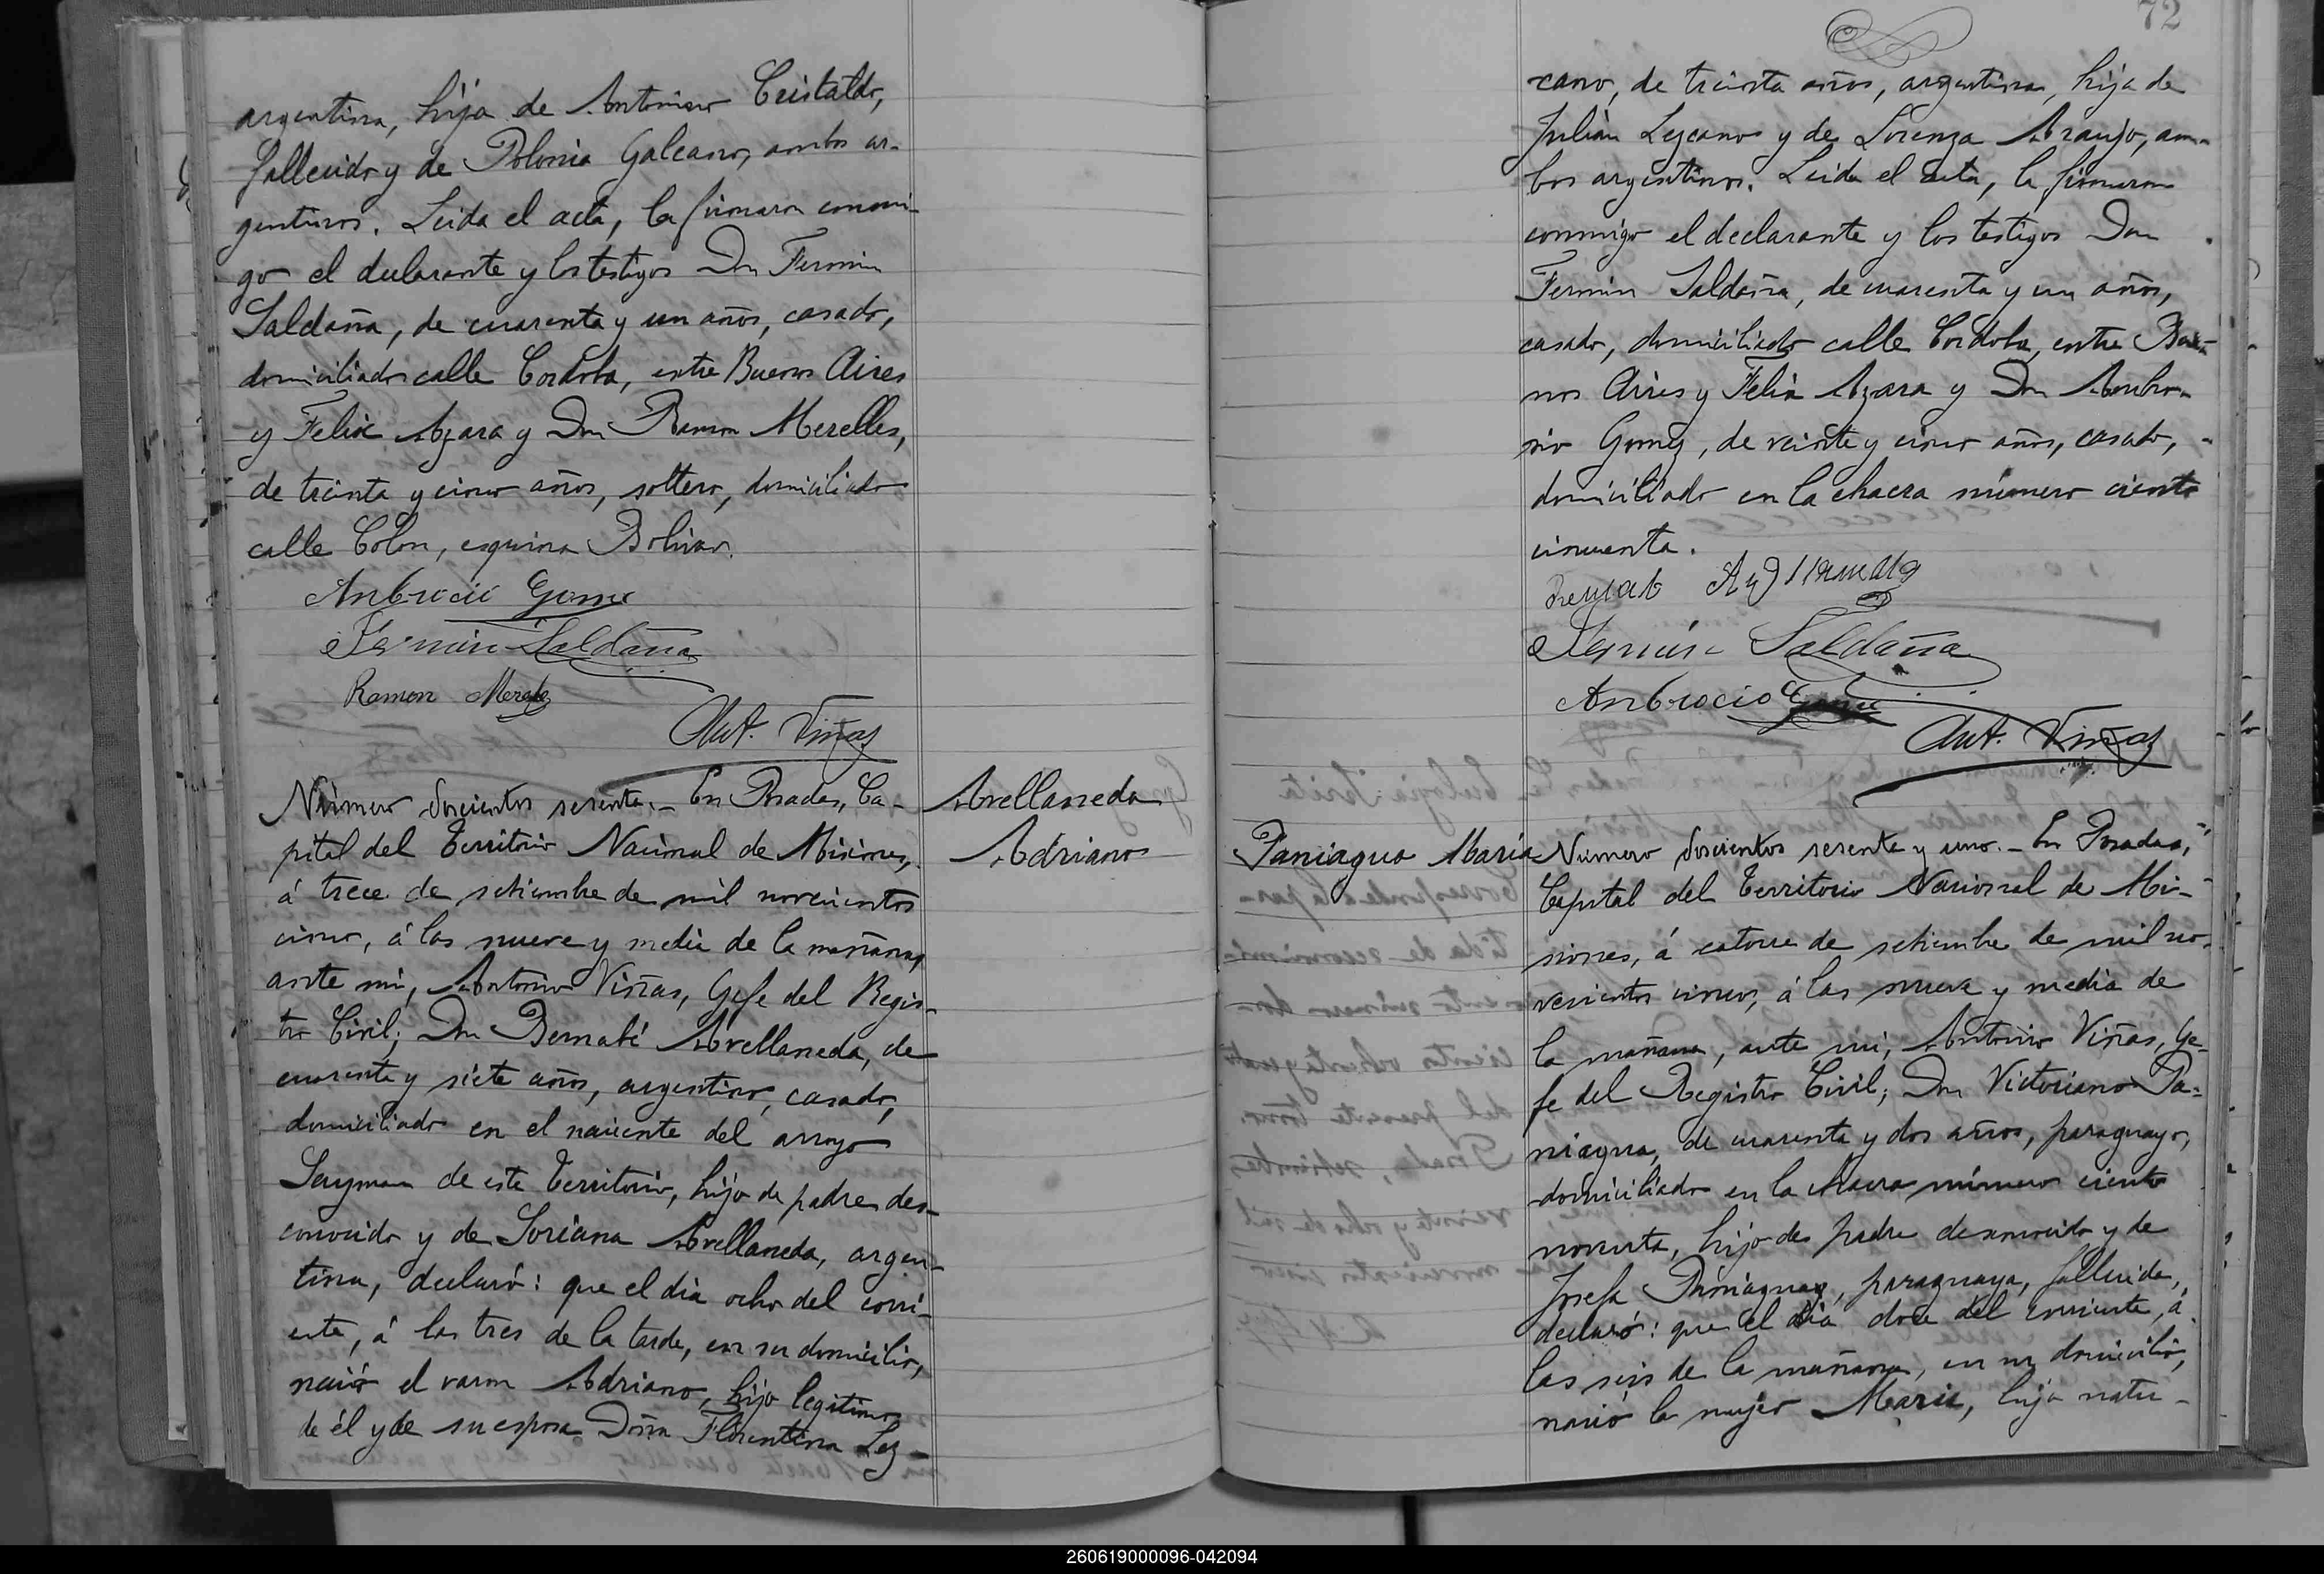 argentina, hija de Antonino Cristaldo,
fallecido y de Polonia Galeano, ambos ar-
gentinos. Leida el acta, la firmaron conmi-
go el declarante y los testigos Don Fermin
Saldaña, de cuarenta y un años, casado,
domiciliado calle Cordoba, entre Buenos Aires
y Felix Azara y Don Ramon Merelles,
de treinta y cinco años, soltero, domiciliado
calle Colon, esquina Bolivar.
Anbrocio Gomez
Fermin Saldaña
Ramon Mereles
Ant. Viñas
Número doscientos sesenta.- En Posadas, Ca-
pital del Territorio Nacional de Misiones,
á trece de setiembre de mil novecientos
cinco, á las nueve y media de la mañana,
ante mi, Antonio Viñas, Gefe del Regis-
tro Civil; Don Bernabé Avellaneda, de
cuarenta y siete años, argentino, casado,
domiciliado en el naciente del arroyo
Sayman de este Territorio, hijo de padre des-
conocido y de Soriana Avellaneda, argen-
tina, declaró: que el dia ocho del corri-
ente, á las tres de la tarde, en su domicilio,
nació el varon Adriano, hijo legitimo
de él y de su esposa Doña Florentina Lez-
Avellaneda
Adriano
72
cano, de treinta años, argentina, hija de
Julián Lezcano y de Lorenza Araujo, am-
bos argentinos. Leida el acta, la firmaron
conmigo el declarante y los testigos Don
Fermin Saldaña, de cuarenta y un años,
casado, domiciliado calle Cordoba, entre Bue-
nos Aires y Felix Azara y Don Ambro-
sio Gomez, de veinte y cinco años, casado,
domiciliado en la chacra número ciento
cincuenta.
Fermin Saldaña
Anbrocio Gomez
Ant. Viñas
Paniagua Maria
Número doscientos sesenta y uno.- En Posadas,
Capital del Territorio Nacional de Mi-
siones, á catorce de setiembre de mil no-
vecientos cinco, á las nueve y media de
la mañana, ante mi, Antonio Viñas, Ge-
fe del Registro Civil; Don Victoriano Pa-
niagua, de cuarenta y dos años, paraguayo,
domiciliado en la chacra número ciento
noventa, hijo de padre desconocido y de
Josefa Paniagua, paraguaya, fallecida,
declaró: que el dia doce del corriente, á
las seis de la mañana, en su domicilio,
nació la mujer Maria, hija natu-
260619000096-042094